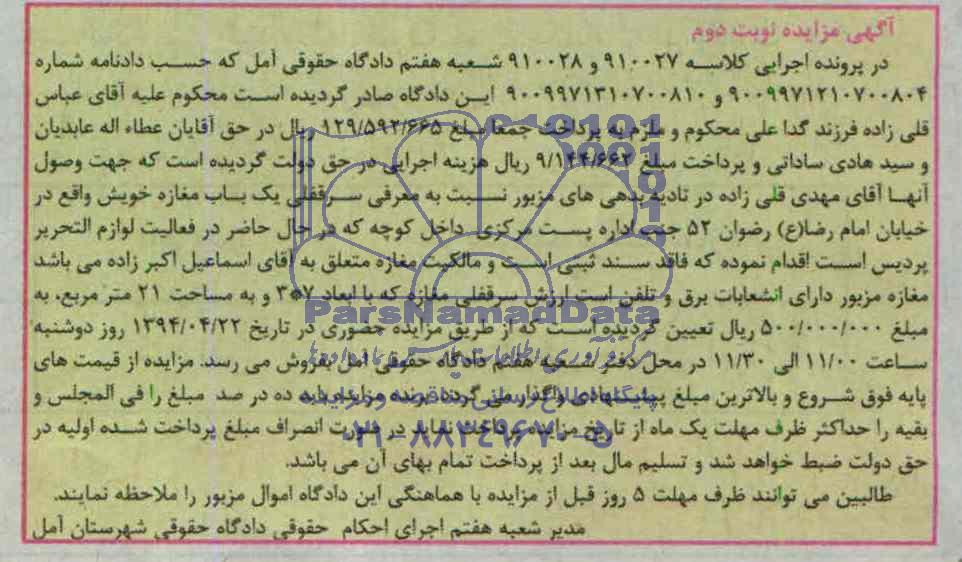 آگهی مزایده نوبت دوم
در پرونده اجرایی کلاسه ۹۱۰۰۲۷ و ۹۱۰۰۲۸ شعبه هفتم دادگاه حقوقی آمل که حسب دادنامه شماره
۹۰۰۹۹۷۱۲۱۰۷۰۰۸۰۴ و ۹۰۰۹۹۷۱۳۱۰۷۰۰۸۱۰ این دادگاه صادر گردیده است محکوم علیه آقای عباس
قلی زاده فرزند گدا علی محکوم و ملزم به پرداخت جمعا مبلغ ۱۲۹/۵۹۲/۶۶۵ ریال در حق آقایان عطاء اله عابدیان
و سید هادی ساداتی و پرداخت مبلغ ۹/۱۴۴/۶۶۲ ریال هزینه اجرایی در حق دولت گردیده است که جهت وصول
آنها آقای مهدی قلی زاده در تادیه بدهی های مزبور نسبت به معرفی سرقفلی یک باب مغازه خویش واقع در
خیابان امام رضا(ع) رضوان ۵۲ جنب اداره پست مرکزی داخل کوچه که در حال حاضر در فعالیت لوازم التحریر
پردیس است اقدام نموده که فاقد سند ثبتی است و مالکیت مغازه متعلق به آقای اسماعیل اکبر زاده می باشد
مغازه مزبور دارای انشعابات برق و تلفن است ارزش سرقفلی مغازه که با ابعاد ۷*۳ و به مساحت ۲۱ متر مربع، به
مبلغ ۵۰۰/۰۰۰/۰۰۰ ریال تعیین گردیده است که از طریق مزایده حضوری در تاریخ ۱۳۹۴/۰۴/۲۲ روز دوشنبه
ساعت ۱۱/۰۰ الی ۱۱/۳۰ در محل دفتر شعبه هفتم دادگاه حقوقی آمل بفروش می رسد. مزایده از قیمت های
پایه فوق شروع و بالاترین مبلغ پیشنهادی واگذار می گردد. برنده مزایده باید ده در صد مبلغ را فی المجلس و
بقیه را حداکثر ظرف مهلت یک ماه از تاریخ مزایده پرداخت نماید در صورت انصراف مبلغ پرداخت شده اولیه در
حق دولت ضبط خواهد شد و تسلیم مال بعد از پرداخت تمام بهای آن می باشد.
طالبین می توانند ظرف مهلت ۵ روز قبل از مزایده با هماهنگی این دادگاه اموال مزبور را ملاحظه نمایند.
مدیر شعبه هفتم اجرای احکام حقوقی دادگاه حقوقی شهرستان آمل
ParsNamadData
۰۲۱-۸۸۳۴۹۶۷۰-۵